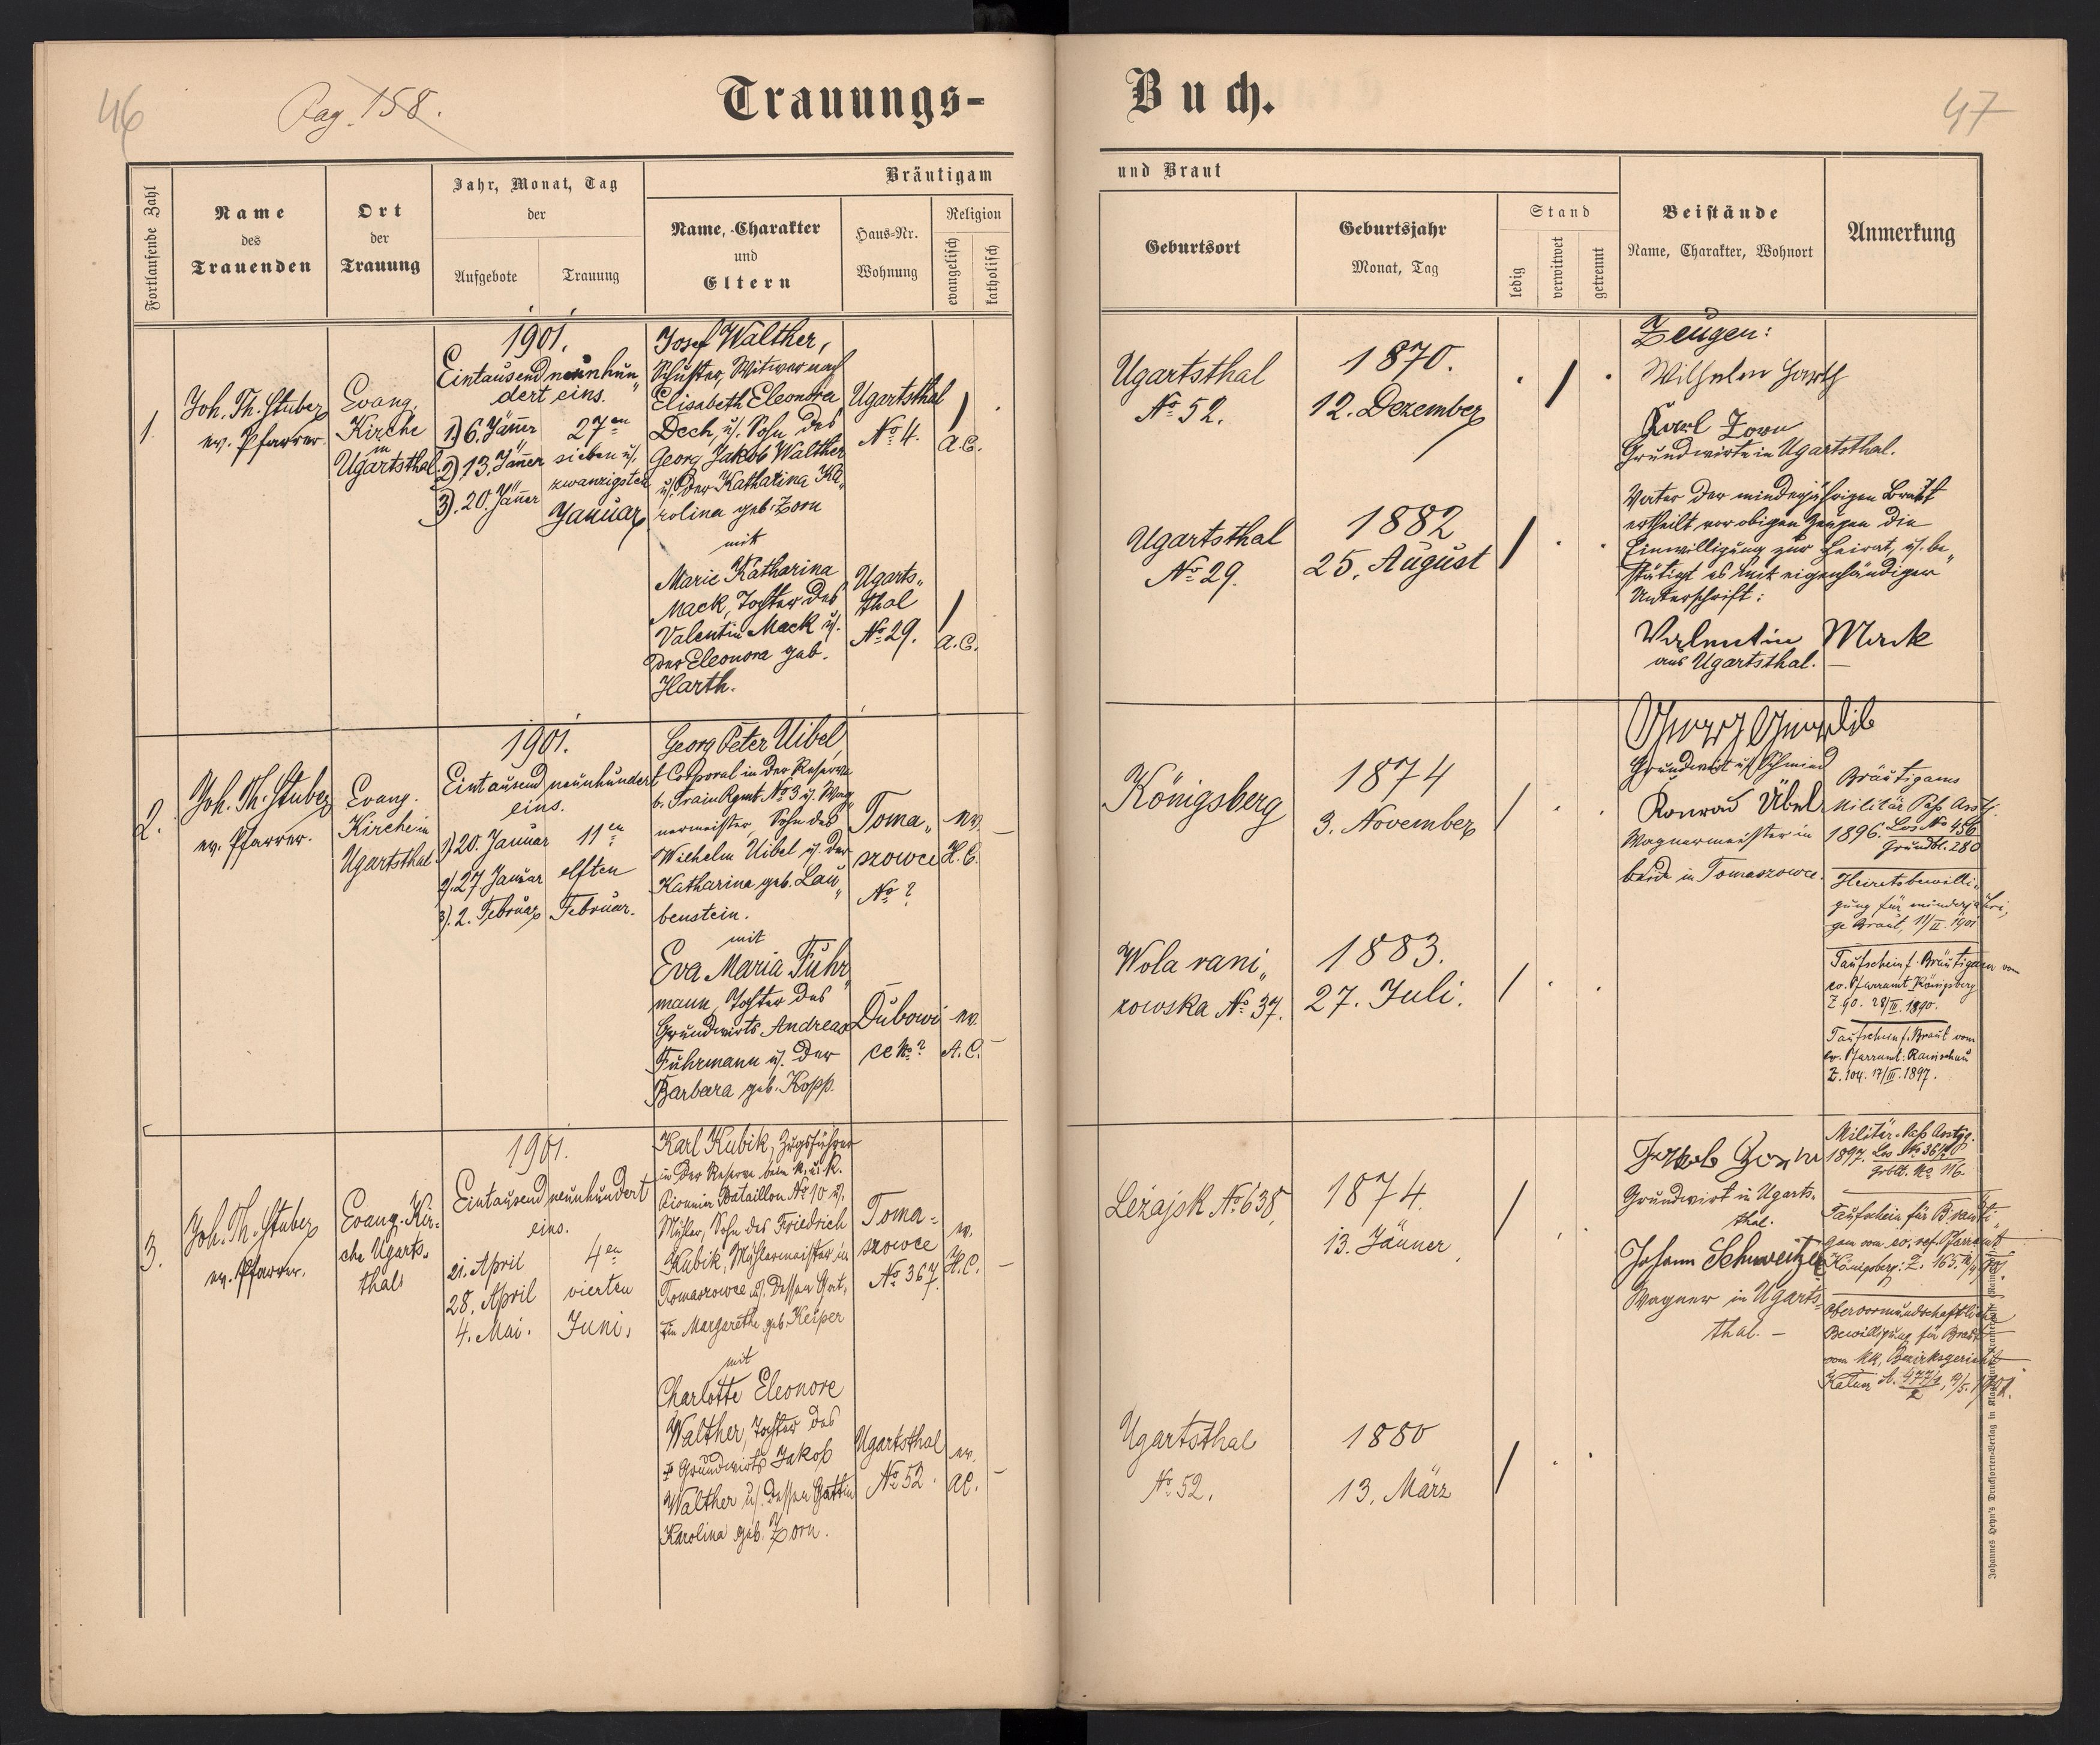 46
Pag. 158.
Trauungs-
Buch.
47
Fortlaufende Zahl
Name
des
Trauenden
Ort
der
Trauung
Jahr, Monat, Tag
der
Aufgebote
Trauung
Bräutigam
Name, Charakter
und
Eltern
Haus-Nr.
Wohnung
Religion
evangelisch
katholisch
und Braut
Geburtsort
Geburtsjahr
Monat, Tag
Stand
ledig
verwitwet
getrennt
Beistände
Name, Charakter, Wohnort
Anmerkung
1.
Joh. Th. Stuber
ev. Pfarrer.
Evang.
Kirche
in
Ugartsthal.
1901.
Eintausend neunhun„
dert eins.
1.) 6. Jänner
2) 13. Jänner
3). 20. Jänner
27en
sieben u.
zwanzigsten
Januar
Josef Walther,
Schuster, Witwer nach
Elisabeth Eleonora
Dech, u. Sohn des
Georg Jakob Walther
u. der Katharina Ka„
rolina geb. Zorn
mit
Marie Katharina
Mack, Tochter des
Valentin Mack u.
der Eleonora geb.
Harth.
Ugartsthal
No 4.
A.C.
Ugarts„
thal
No 29.
A.C.
Ugartsthal
No 52.
1870.
12. Dezember
Ugartsthal
No 29.
1882
25. August
Zeugen:
Wilhelm Harth
Karl Zorn
Grundwirte in Ugartsthal.
Vater der minderjährigen Braut
ertheilt vor obigen Zeugen die
Einwilligung zur Heirat, u. be„
stätigt es mit eigenhändiger
Unterschrift:
Valentin Mack
aus Ugartsthal.
2.
Joh. Th. Stuber
ev. Pfarrer.
Evang.
Kirche in
Ugartsthal
1901.
Eintausend neunhundert
eins.
1) 20. Januar
2). 27 Januar
3). 2. Februar
11en
elften
Februar.
Georg Peter Uibel,
Corporal in der Reserve
b. Train Rgmt. No 3 u. Wag„
nermeister, Sohn des
Wilhelm Uibel u. der
Katharina geb. Lau„
benstein.
mit
Eva Maria Fuhr„
mann, Tochter des
Grundwirts Andreas
Fuhrmann u. der
Barbara geb. Kopp.
Toma„
szowce
No ?
ev.
H.C.
Dubowi
ce No ?
ev.
A.C.
Königsberg
1874
3. November
Wola rani„
zowska No 37.
1883.
27. Juli.
Grundwirt u. Schmied
Konrad Übel
Wagnermeister in
beide in Tomaszowce.
Bräutigams
Militär Pass Asstj.
1896. Los No 456
Grundbl. 280
Heiratsbewilli„
gung für minderjähri„
ge Braut, 11/II. 1901
Taufschein f. Bräutigam vom
ev. Pfarramt Königsberg
Z. 90. 1890.
Taufschein f. Braut vom
ev. Pfarramt: Ranischau
Z. 104. 17/III. 1897.
3.
Joh. Th. Stuber
ev. Pfarrer.
Evang. Kir„
che Ugarts„
thal
1901.
Eintausend neunhundert
eins.
21. April
28. April
4. Mai.
4en
vierten
Juni.
Karl Kubik, Zugsführer
in der Reserve beim k. u. k.
Pionnier Bataillon No 10 u.
Müller, Sohn des Friedrich
Kubik, Müllermeister in
Tomaszowce u. dessen Gat„
tin Margarethe geb. Keiper
mit
Charlotte Eleonore
Walther, Tochter des
Grundwirts Jakob
Walther u. dessen Gattin
Karolina geb. Zorn.
Toma„
szowce
No 367.
ev.
H.C.
Ugartsthal
No 52.
ev.
AC.
Leżajsk No 638.
1874.
13. Jänner
Ugartsthal
No 52.
1880
13. März
Jakob Zorn
Grundwirt in Ugarts„
thal.
Johann Schweitzer
Wagner in Ugarts„
thal. –
Militär-Pass Asstjg.
1897. Los No
Grbltt. No 116.
Taufschein für Bräuti„
gam vom ev. ref. Pfarramt
Königsberg: Z. 165.
Obervormundschaftliche
Bewilligung für Braut
vom kk. Bezirksgericht
Kałusz
Johannes Heyn's Drucksorten-Verlag in Klagenfurt, Kramergasse